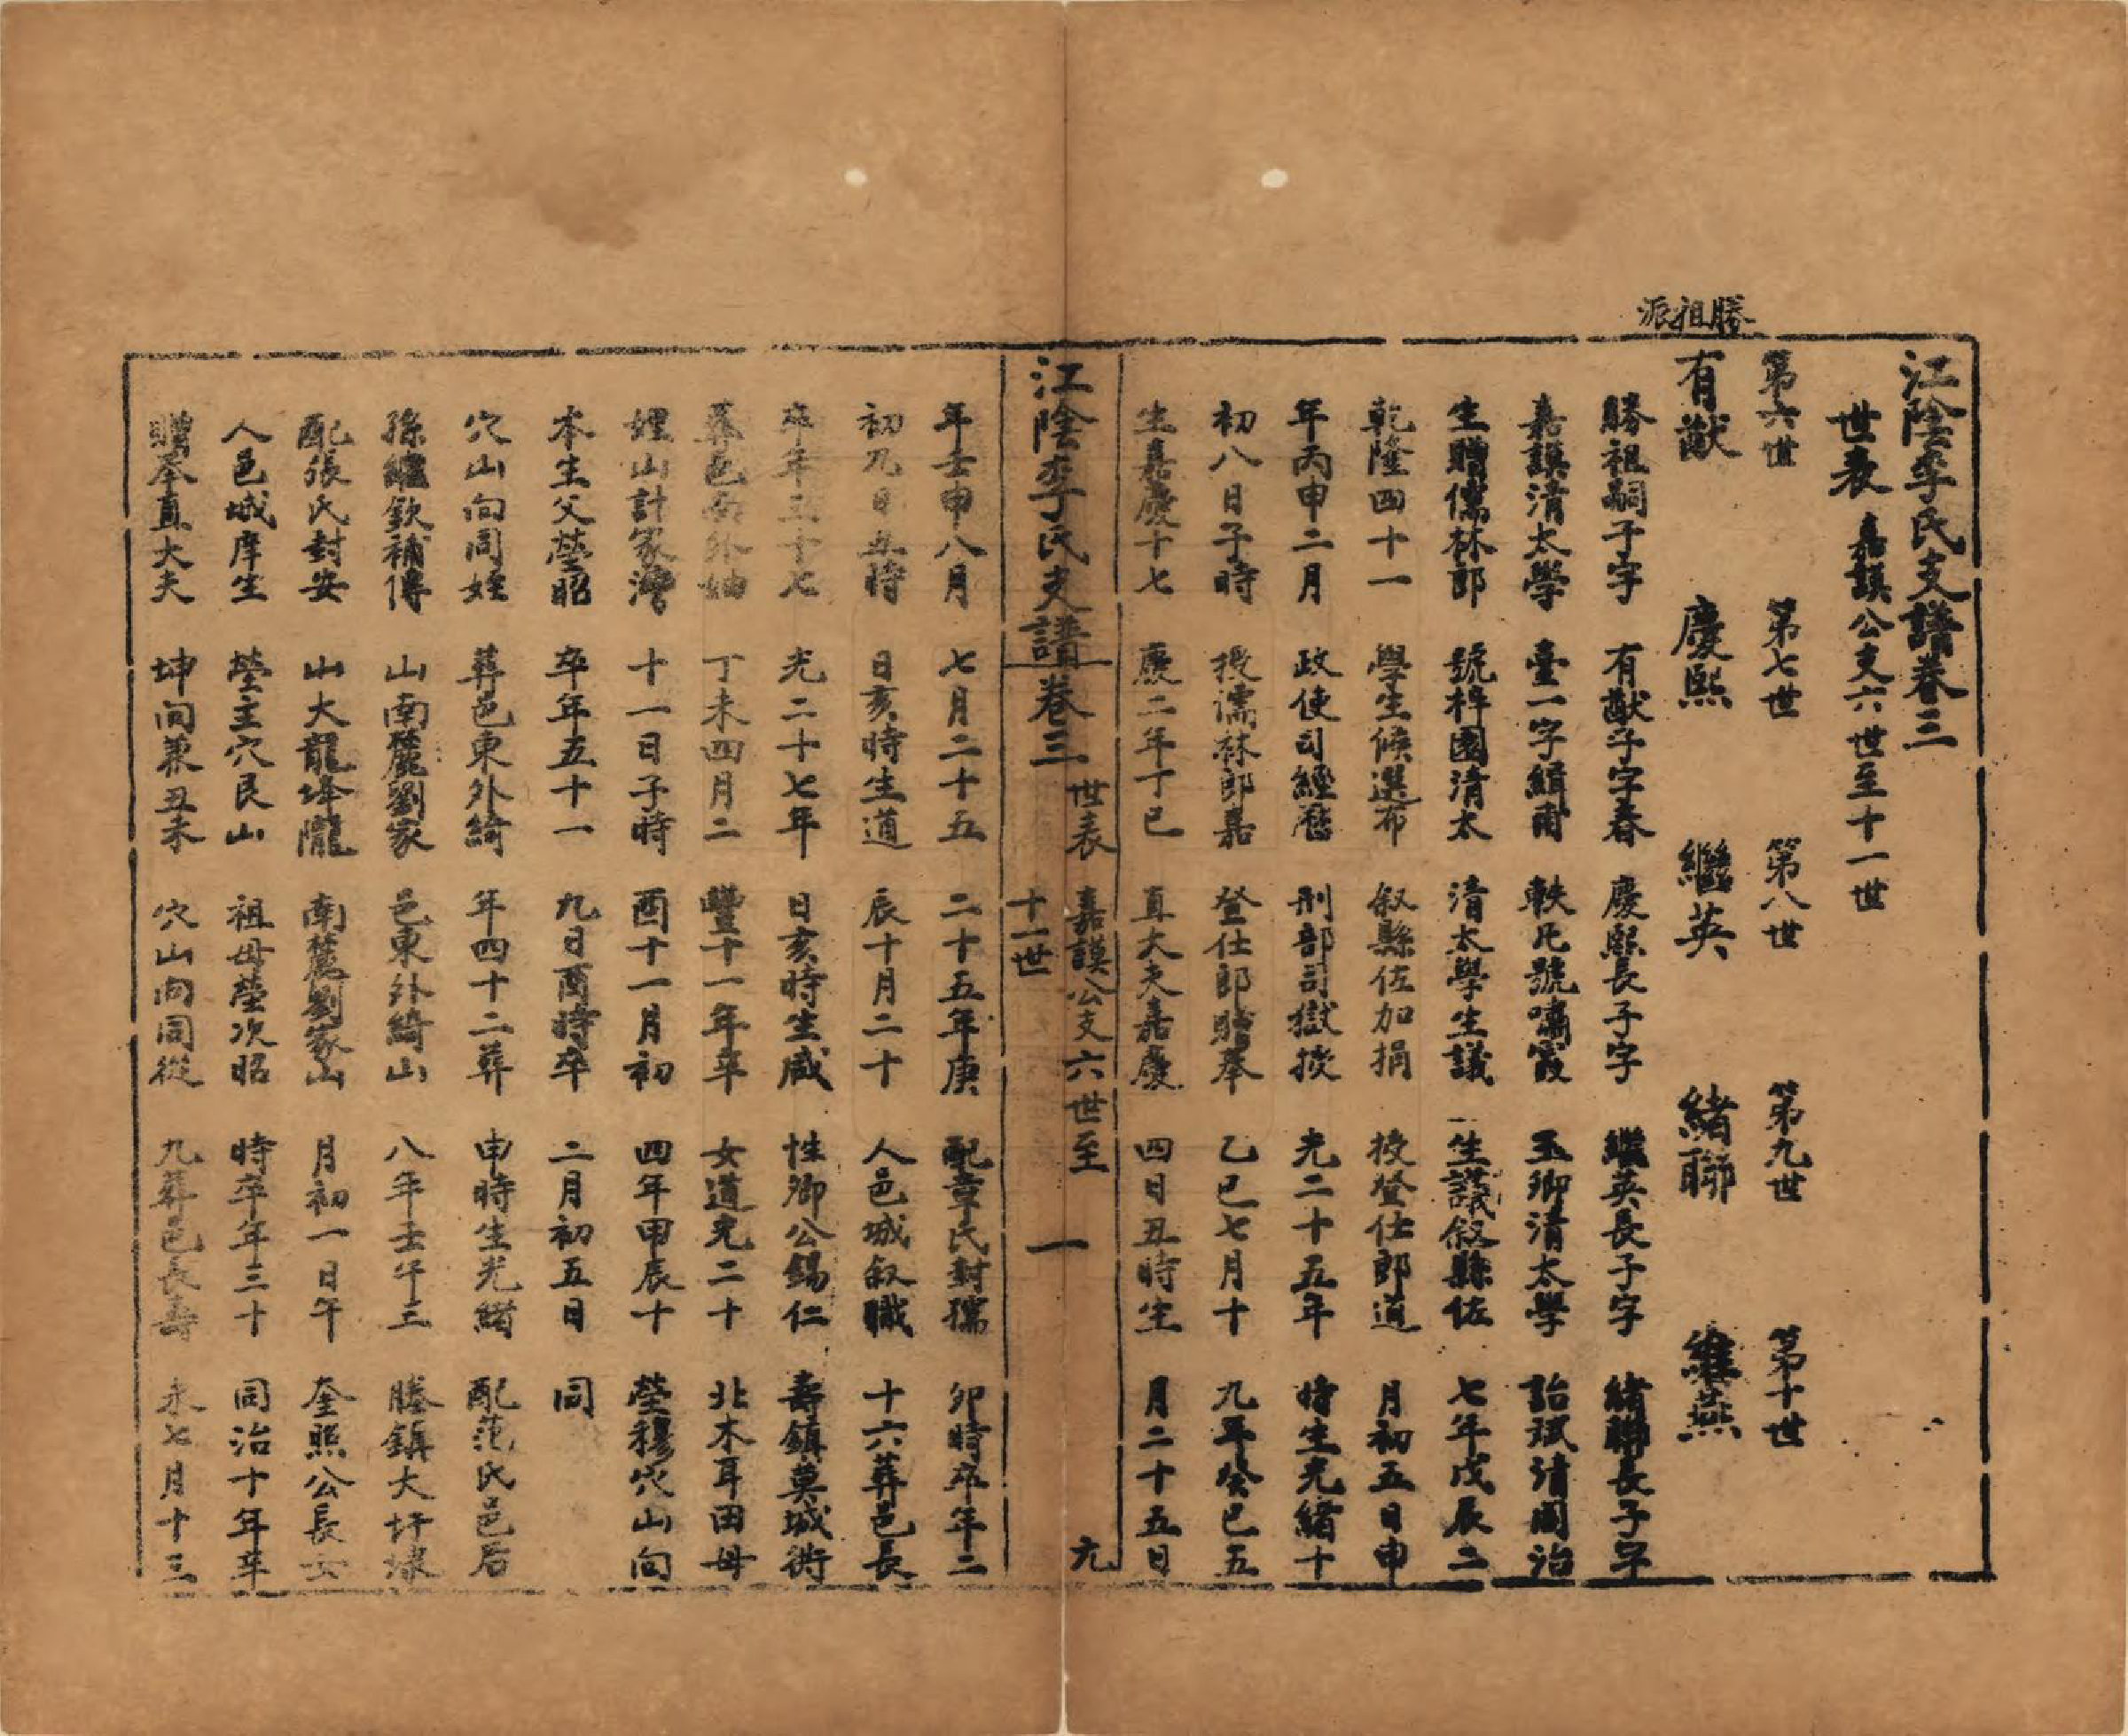 江陰李氏支譜卷三
世表 嘉謨公支六世至十一世
勝祖派
第六世
有猷
勝祖嗣子字
嘉謨清太學
生贈儒林郎
乾隆四十一
年丙申二月
初八日子時
生嘉慶十七
年壬申八月
初九日丑時
卒年三十七
葬邑南外妯
娌山計家灣
本生父塋昭
穴山向同姪
孫繼欽補傳
配張氏封安
人邑城庠生
贈奉直大夫
第七世
慶熙
有猷子字春
臺一字緝甫
號梓園清太
學生候選布
政使司經歷
授儒林郎嘉
慶二年丁巳
七月二十五
日亥時生道
光二十七年
丁未四月二
十一日子時
卒年五十一
葬邑東外綺
山南麓劉家
山大龍埄隴
塋主穴艮山
坤向兼丑未
第八世
繼英
慶熙長子字
軼凡號嘯霞
清太學生議
叙縣佐加捐
刑部司獄授
登仕郎贈奉
直大夫嘉慶
二十五年庚
辰十月二十
日亥時生咸
豐十一年辛
酉十一月初
九日酉時卒
年四十二葬
邑東外綺山
南麓劉家山
祖母塋次昭
穴山向同從
第九世
緒聯
繼英長子字
玉卿清太學
生議叙縣佐
授登仕郎道
光二十五年
乙巳七月十
四日丑時生
配章氏封孺
人邑城叙職
性卿公錫仁
女道光二十
四年甲辰十
二月初五日
申時生光緒
八年壬午三
月初一日午
時卒年三十
九葬邑長壽
第十世
維燕
緒聯長子字
詒珷清同治
七年戊辰二
月初五日申
時生光緒十
九年癸巳五
月二十五日
卯時卒年二
十六葬邑長
壽鎮莫城街
北木耳田母
塋穆穴山向
同
配范氏邑后
塍鎮大圩埭
奎照公長女
同治十年辛
未七月十三
江陰李氏支譜卷三
世表 嘉謨公支六世至
十一世
一
元